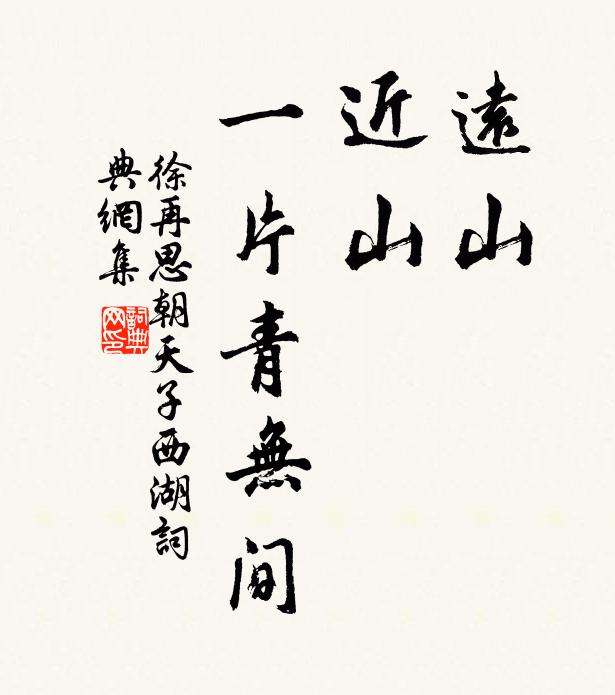 遠山
近山
一片青無間
徐再思朝天子西湖詞
典網集
詞典
网印